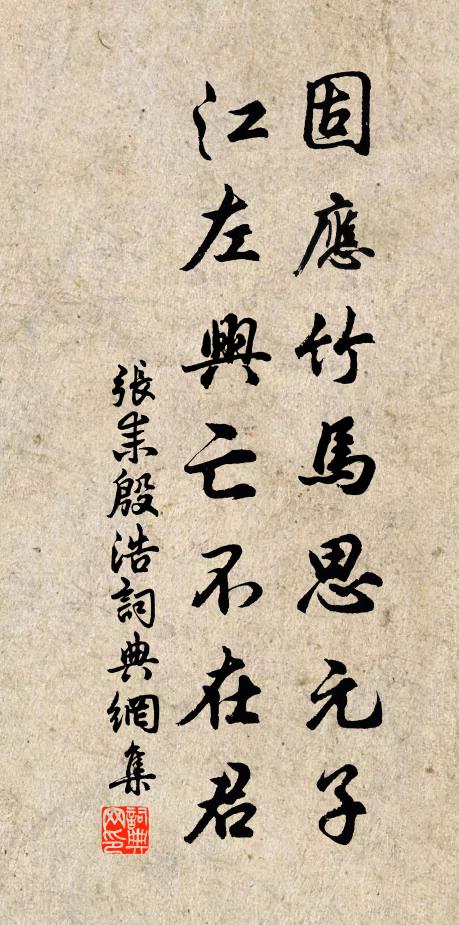 固應竹馬思元子
江左興亡不在君
張耒殷浩詞典網集
詞典
网印